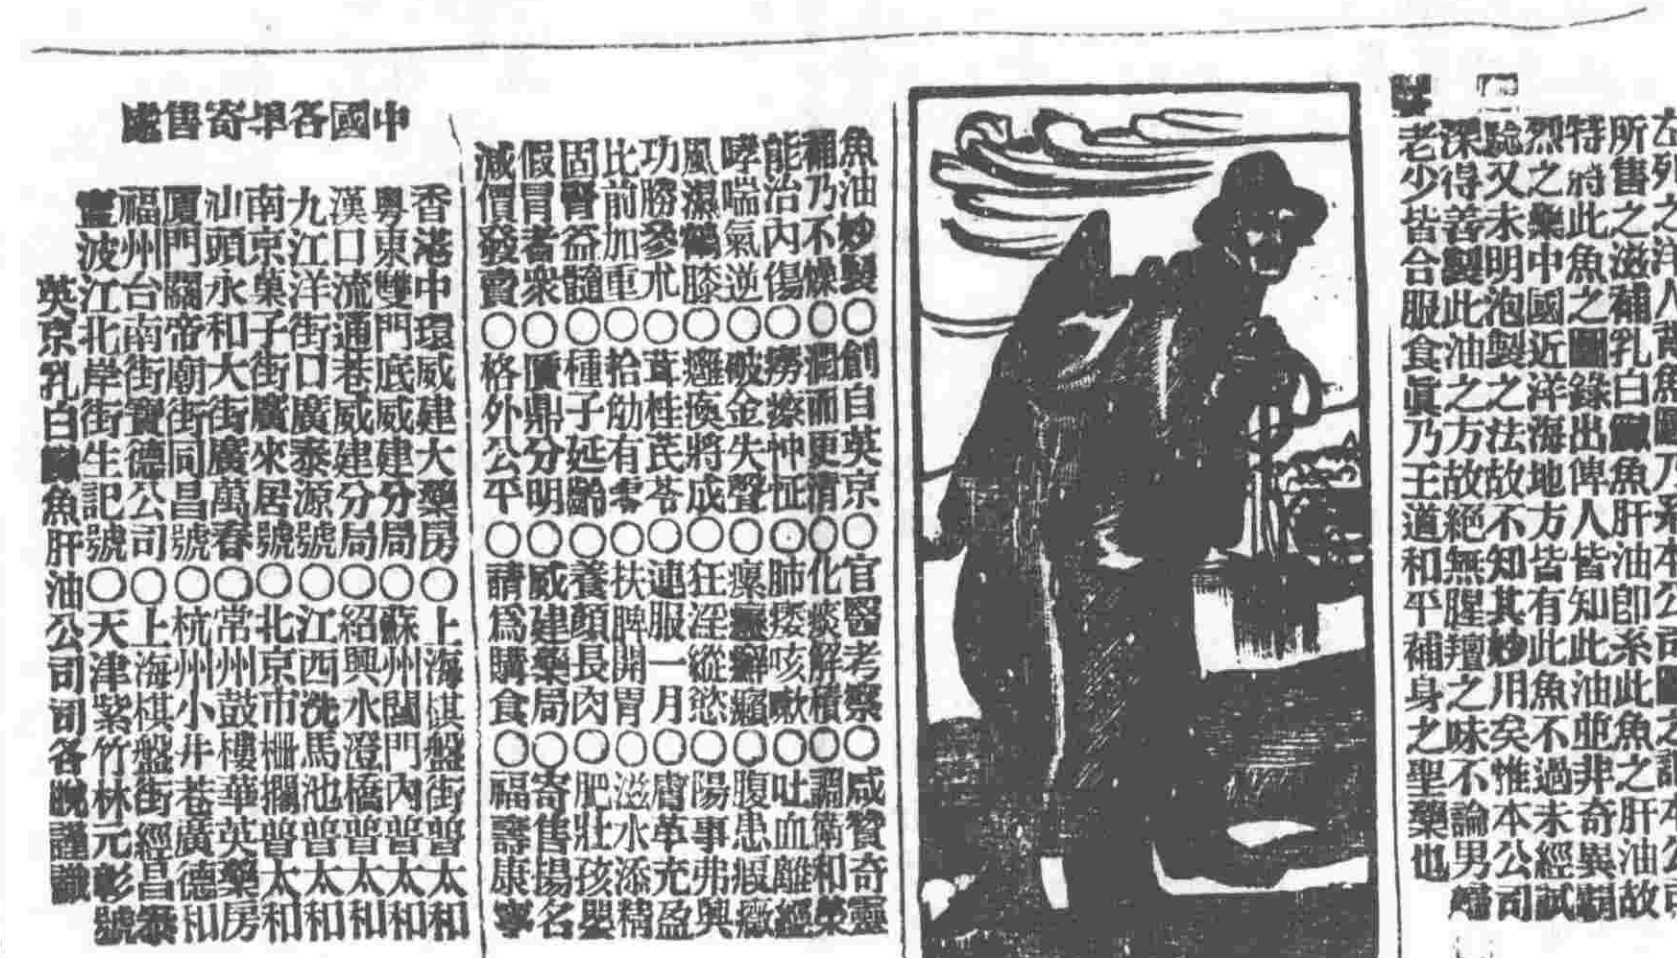 所售之滋補乳白鰵魚肝油卽糸此魚之肝油故
特將此魚之圖錄出俾人皆知此油並非奇異霸
烈之藥中國近洋海地方皆有此魚不過未經試
驗又未明泡製之法故不知其妙用矣惟本公司
深得善製此油之方故絕無腥羶之味不論男婦
老少皆合服食眞乃王道和平補身之聖藥也
魚油妙製○創自英京○官醫考察○咸贊奇靈
補乃不燥○潤而更清○化痰解積○調衛和榮
能治內傷○癆瘵忡怔○肺痿咳嗽○吐血離經
哮喘氣逆○破金失聲○瘰癧癬癩○腹患瘕癥
風濕鶴膝○癱瘓將成○狂淫縱慾○陽事弗興
功勝參朮○茸桂芪苓○連服一月○膚革充盈
比前加重○拾觔有零○扶脾開胃○滋水添精
固腎益髓○種子延齡○養顏長肉○肥壯孩嬰
假冒者衆○贋鼎分明○威建藥局○寄售揚名
減價發賣○格外公平○請爲購食○福壽康寧
中國各埠寄售處
香港中環威建大藥房○上海棋盤街普太和
粤東雙門底威建分局○蘇州閶門內普太和
漢口流通巷威建分局○紹興水澄橋普太和
九江洋街口廣泰源號○江西洗馬池普太和
南京菓子街廣來居號○北京市柵攔普太和
汕頭永和大街廣萬春○常州鼓樓華英藥房
厦門關帝廟街同昌號○杭州小井巷廣德和
福州台南街寶德公司○上海棋盤街經昌泰
寗波江北岸街生記號○天津紫竹林元彰號
英京乳白鰵魚肝油公司司各脫謹識